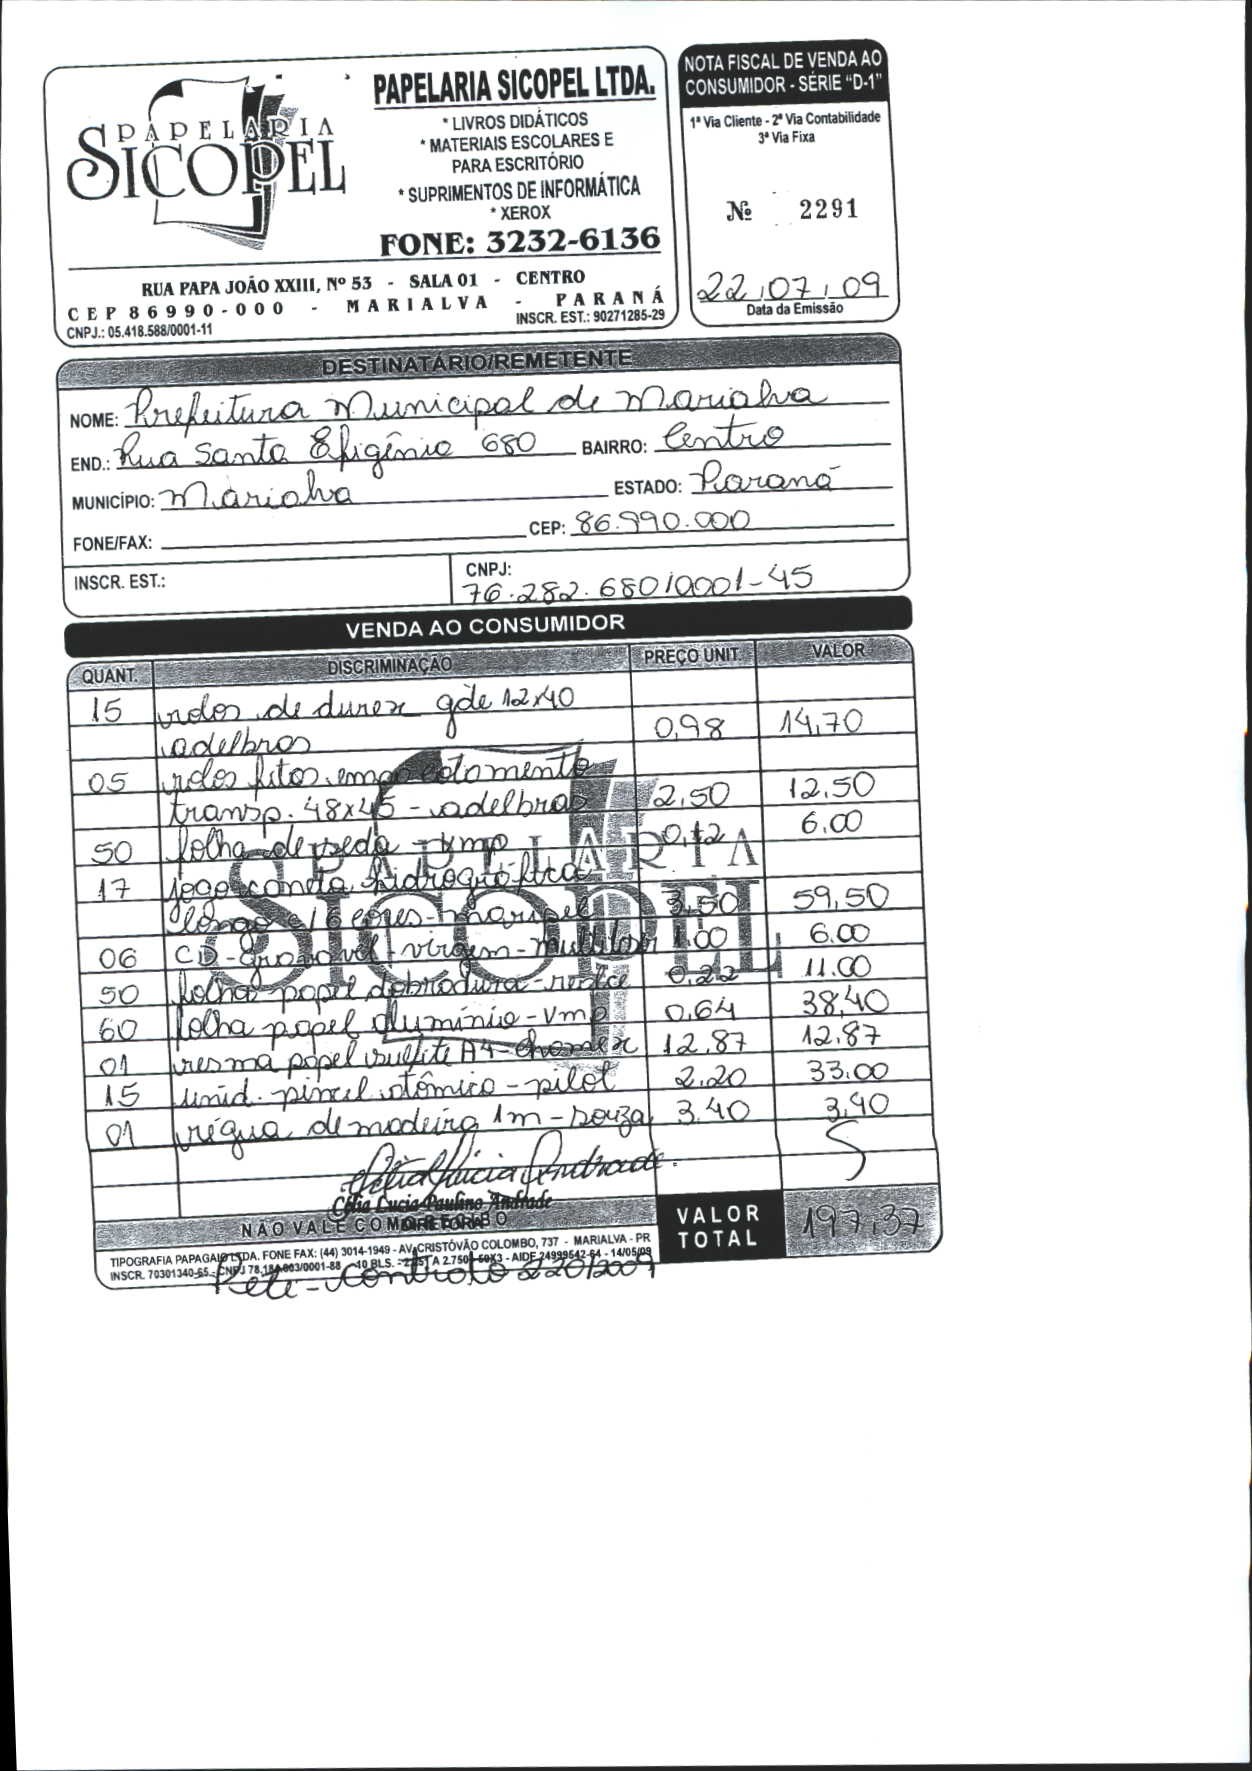 PAPELARIA
SICOPEL
PAPELARIA SICOPEL LTDA.
* LIVROS DIDÁTICOS
* MATERIAIS ESCOLARES E
PARA ESCRITÓRIO
* SUPRIMENTOS DE INFORMÁTICA
* XEROX
FONE: 3232-6136
RUA PAPA JOÃO XXIII, Nº 53 - SALA 01 - CENTRO
CEP 86990-000 - MARIALVA - PARANÁ
CNPJ.: 05.418.588/0001-11 INSCR. EST.: 90271285-29
NOTA FISCAL DE VENDA AO
CONSUMIDOR - SÉRIE "D-1"
1ª Via Cliente - 2ª Via Contabilidade
3ª Via Fixa
Nº 2291
22/07/09
Data da Emissão
DESTINATÁRIO/REMETENTE
NOME: Prefeitura Municipal de Marialva
END.: Rua Santa Efigênia 680 BAIRRO: Centro
MUNICÍPIO: Marialva ESTADO: Paraná
FONE/FAX: CEP: 86.990.000
INSCR. EST.: CNPJ:
76.282.680/0001-45
VENDA AO CONSUMIDOR
QUANT. DISCRIMINAÇÃO PREÇO UNIT. VALOR
15 rolos de durex gde 12x40
adelbras 0,98 14,70
05 rolos fitas empacotamento
transp. 48x45 - adelbras 2,50 12,50
50 folha de seda - vmp 0,12 6.00
17 jogo caneta hidrográfica
longo c/6 cores - maripel 3,50 59,50
06 CD - gravável - virgem - multilaser 1.00 6.00
50 folhas papel dobradura - 0,22 11.00
60 folha papel alumínio - vmp 0,64 38,40
01 resma papel sulfite A4 - chamex 12,87 12,87
15 unid. pincel atômico - pilot 2.20 33.00
01 régua de madeira 1m - souza 3.40 3,40
Célia Lucia Andrade
Célia Lucia Paulino Andrade
DIRETORA
NÃO VALE COMO RECIBO
VALOR
TOTAL 197,37
TIPOGRAFIA PAPAGAIO LTDA. FONE FAX: (44) 3014-1949 - AV. CRISTÓVÃO COLOMBO, 737 - MARIALVA - PR
INSCR. 70301340-65 - CNPJ 78.184.003/0001-88 10 BLS. - 2.251 A 2.750 - 50X3 - AIDF 24999642-64 - 14/05/09
Peti - Contrato 220/2009